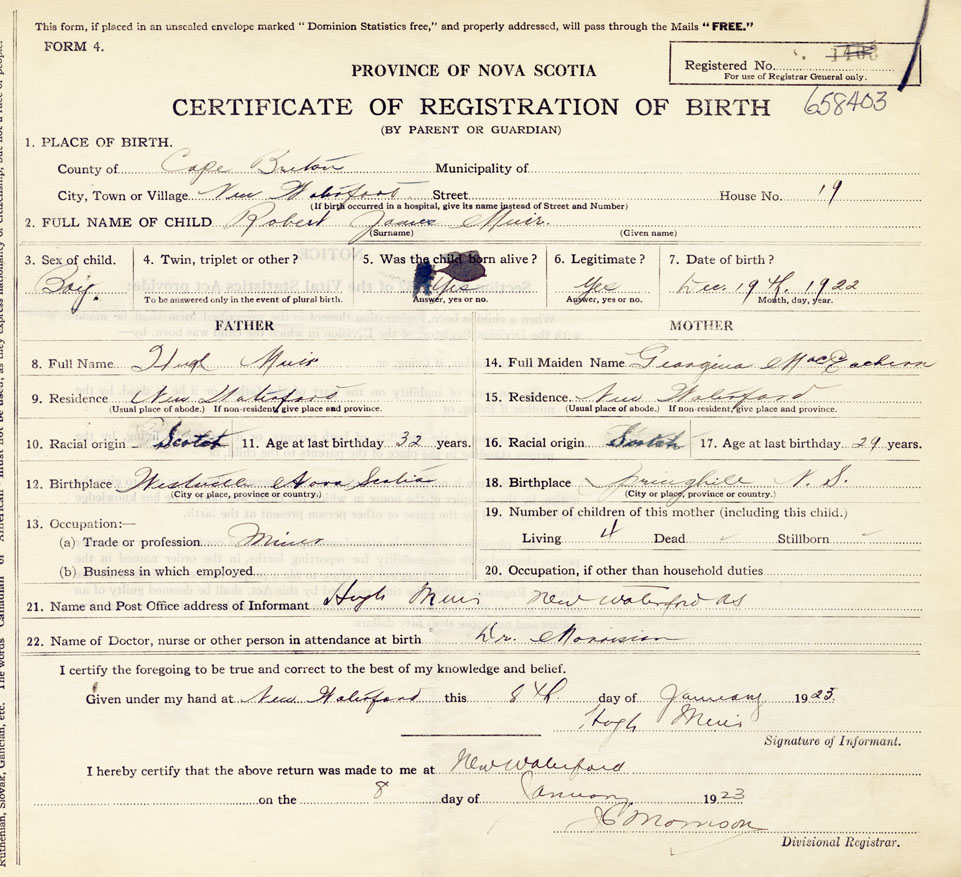 This form, if placed in an unsealed envelope marked "Dominion Statistics free," and properly addressed, will pass through the Mails "FREE."
FORM 4.
Registered No.
For use of Registrar General only.
PROVINCE OF NOVA SCOTIA
CERTIFICATE OF REGISTRATION OF BIRTH 658403
(BY PARENT OR GUARDIAN)
1. PLACE OF BIRTH.
County of Cape Breton Municipality of
City, Town or Village New Waterford Street House No. 19
(If birth occurred in a hospital, give its name instead of Street and Number)
2. FULL NAME OF CHILD Robert James Muir.
(Surname) (Given name)
3. Sex of child. 4. Twin, triplet or other? 5. Was the child born alive? 6. Legitimate? 7. Date of birth?
Boy. Yes Yes Dec. 19th. 1922
To be answered only in the event of plural birth. Answer, yes or no. Answer, yes or no. Month, day, year.
FATHER MOTHER
8. Full Name Hugh Muir 14. Full Maiden Name Georgina MacEachern
9. Residence New Waterford 15. Residence New Waterford
(Usual place of abode.) If non-resident, give place and province. (Usual place of abode.) If non-resident, give place and province.
10. Racial origin Scotch 11. Age at last birthday 32 years. 16. Racial origin Scotch 17. Age at last birthday 29 years.
12. Birthplace Westville Nova Scotia 18. Birthplace Springhill N. S.
(City or place, province or country.) (City or place, province or country.)
13. Occupation:— 19. Number of children of this mother (including this child.)
(a) Trade or profession Miner Living 4 Dead Stillborn
(b) Business in which employed 20. Occupation, if other than household duties
21. Name and Post Office address of Informant Hugh Muir New Waterford NS
22. Name of Doctor, nurse or other person in attendance at birth Dr. Morrison
I certify the foregoing to be true and correct to the best of my knowledge and belief.
Given under my hand at New Waterford this 8th day of January 1923.
Hugh Muir
Signature of Informant.
I hereby certify that the above return was made to me at New Waterford
on the 8 day of January 1923
Morrison
Divisional Registrar.